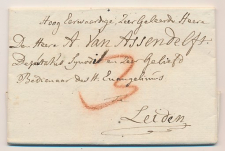 Hoog Eerwaerdige, Zeer Geleerde Heere
De Heere A. Van Assendelft.
Deputatus Synodi en zeer Geliefd
Bedienaar des H. Euangeliums
3
Leiden